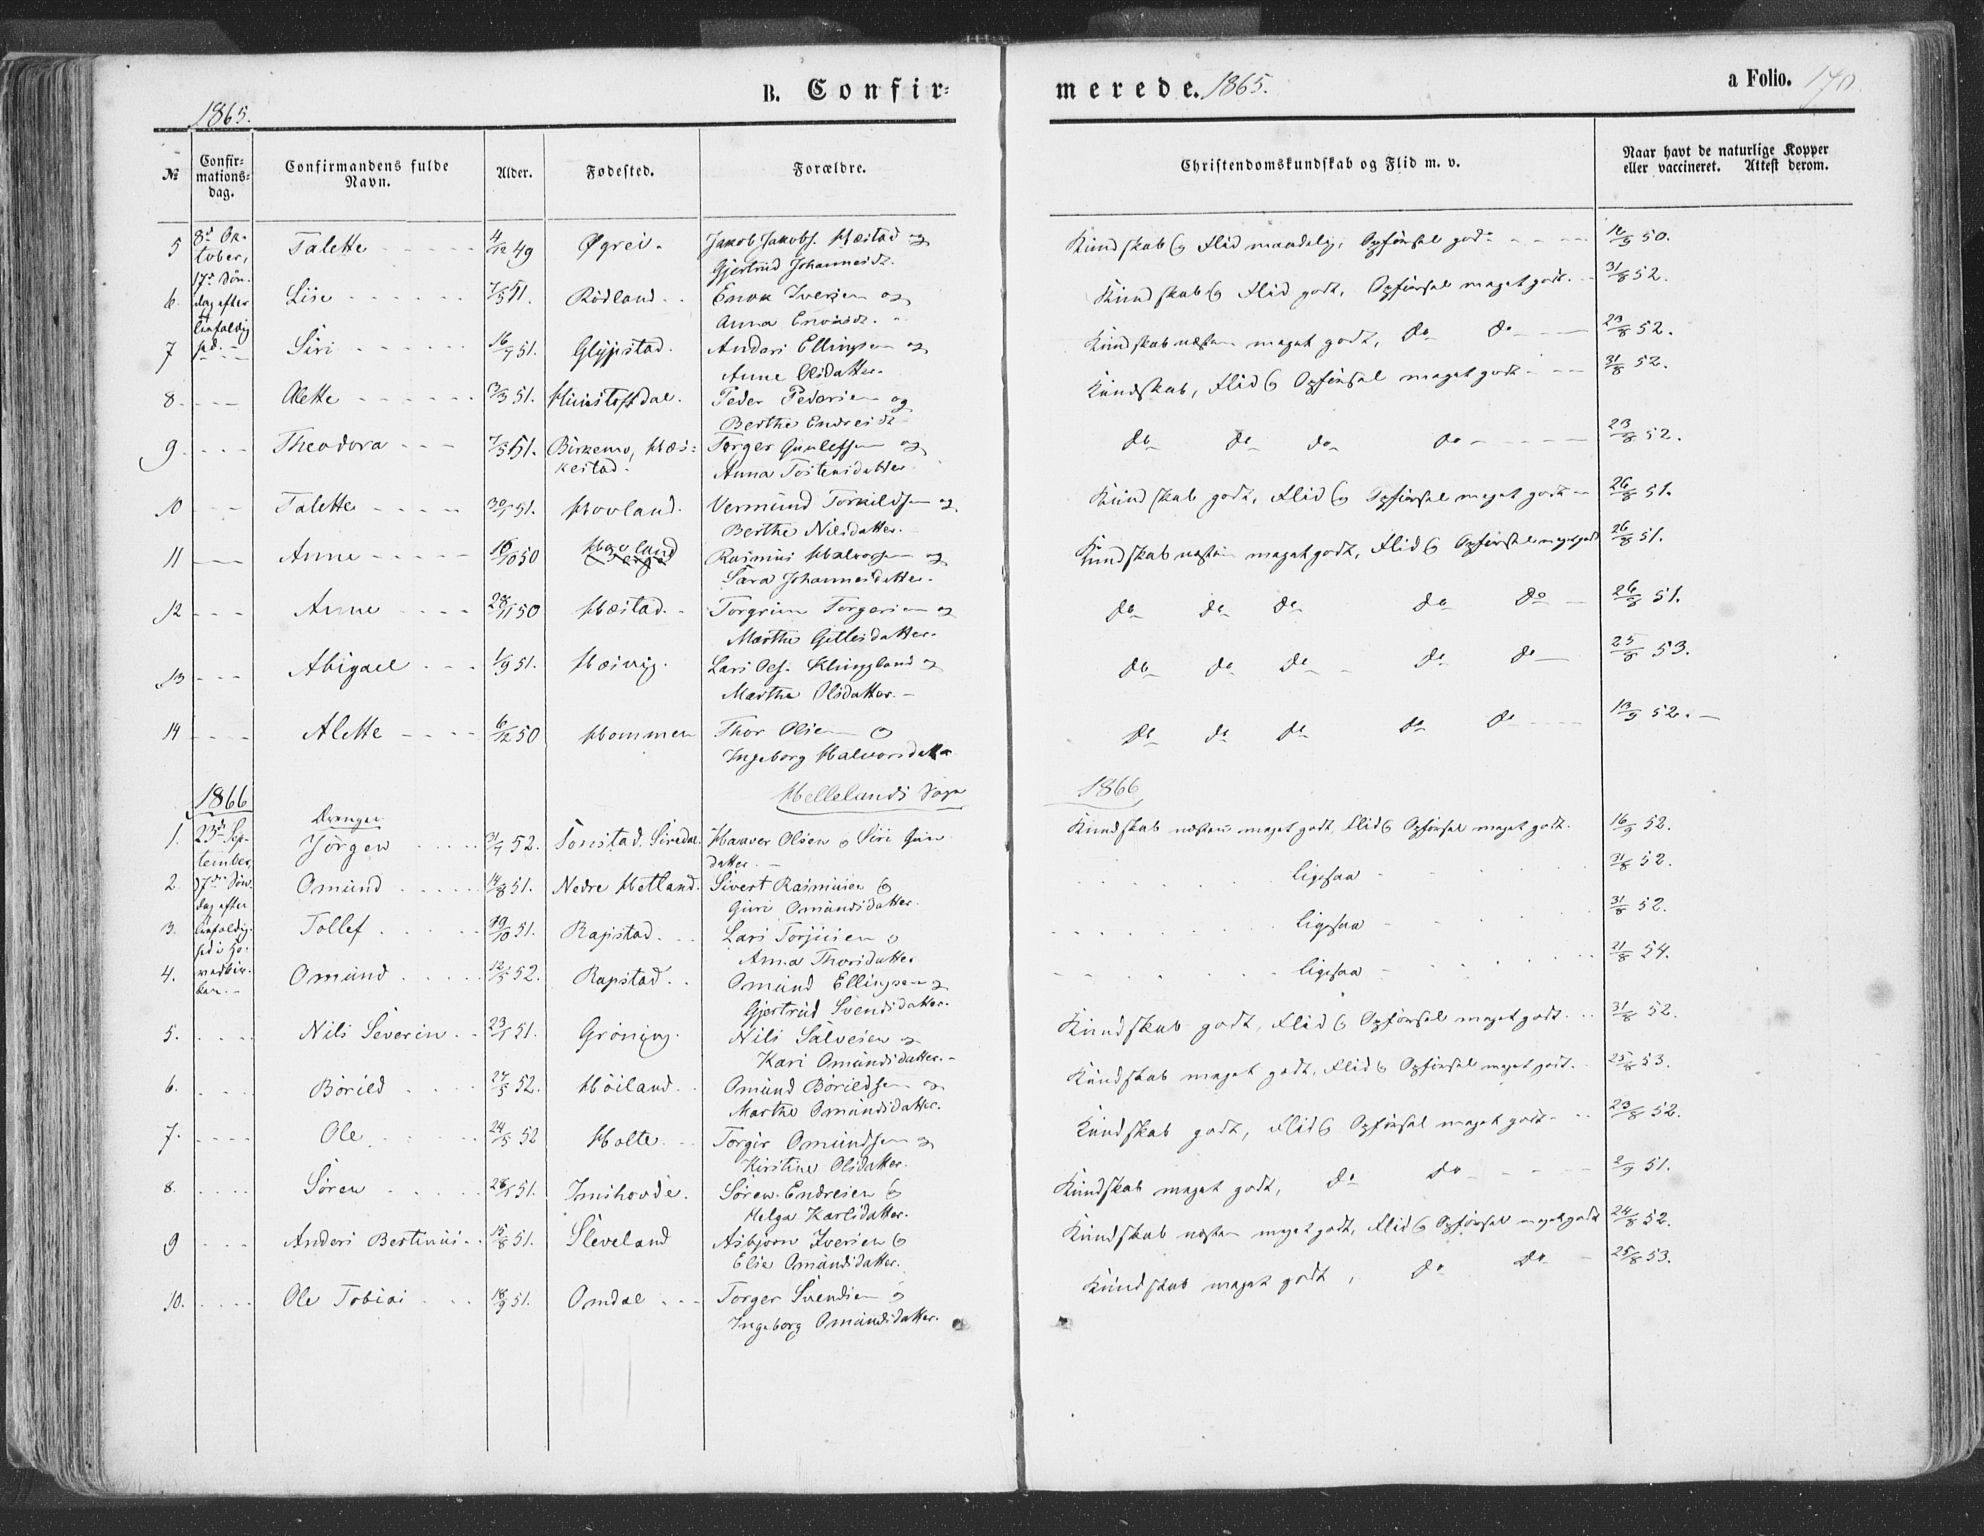 B. Confir-
merede. 1865.
a Folio. 170.
1865.
№
Confir-
mations-
dag.
Confirmandens fulde
Navn.
Alder.
Fødested.
Forældre.
Christendomskundskab og Flid m. v.
Naar havt de naturlige Kopper
eller vaccineret. Attest derom.
5 8d Oc- Talette 4/12 49 Øgrei. Jakob Jakobs. Hæstad og Kundskab og Flid maadelig, Opførsel god. 50.
tober, Gjertrud Johannesdr.
17d Søn-
6. dag efter Lise 7/5 51. Rødland Enok Iversen og Kundskab og Flid godt, Opførsel meget godt. 31/8 52.
Trefoldig Anna Enoksdr.
7 hd. Siri 16/7 51. Glypstad. Anders Ellingsen og Kundskab næsten meget godt, do do 23/8 52.
Anne Olsdatter.
8. Olette 3/3 51. Peder Pedersen og Kundskab, Flid og Opførsel meget godt 31/8 52.
Berthe Endresdr
9. Theodora 7/5 51. Birkemo, Hæs- Torger Gunleffsen og do do do do 23/8 52.
kestad. Anna Tostensdatter.
10 Talette 30/7 51. Hovland. Vermund Torkildsen og Kundskab godt, Flid og Opførsel meget godt 26/8 51.
Berthe Nilsdatter.
11 Anne 16/10 50 Rasmus Halvorsen og Kundskab næsten meget godt, Flid og Opførsel meget godt 26/8 51.
Sara Johannesdatter.
12 Anne 28/11 50 Hæstad. Torgrim Torgersen og do do do do do 26/8 51.
Marthe Gitlesdatter.
13 Abigael 1/9 51. Hæsvig. Lars Ols. Klungland og do do do do do 25/8 53.
Marthe Olsdatter.
14 Alette 6/12 50 Hommen Thor Olsen og do do do do do 13/9 52.
Ingeborg Halvorsdatter
1866 Hellelands Sogn 1866
Drenge
1. 23d Sep- Jørgen 31/7 52. Tonstad, Siredal. Haaver Olsen og Siri Gun Kundskab næsten meget godt, Flid og Opførsel meget godt. 16/9 52.
tember, datter.
2. 17de Søn- Omund 14/8 51. Nedre Hetland. Sivert Rasmusen og ligesaa 31/8 52.
dag efter Guri Omundsdatter.
3. Trefoldig- Tollef 19/10 51. Rapstad. Lars Torjusen og ligesaa 31/8 52.
hed i Ho- Anna Thorsdatter
4. vedkir- Omund 12/5 52. Rapstad. Omund Ellingsen og ligesaa 21/8 54.
ken. Gjertrud Svendsdatter.
5. Nils Severin 23/1 51. Grøning. Nils Salvesen og Kundskab godt, Flid og Opførsel meget godt. 31/8 52.
Kari Omundsdatter.
6. Børild 27/5 52. Høiland. Omund Børildsen og Kundskab meget godt, Flid og Opførsel meget godt. 25/8 53.
Marthe Omundsdatter.
7. Ole 24/5 52 Holte. Torgir Omundsen og Kundskab godt, Flid og Opførsel meget godt. 23/8 52.
Kirstine Olsdatter.
8. Søren 28/1 51. Imshovde. Søren Endresen og Kundskab meget godt, do do 2/9 51.
Helga Karlsdatter.
9 Anders Bertinus 15/8 51. Sleveland Asbjørn Iversen og Kundskab næsten meget godt, Flid og Opførsel meget godt 24/8 52.
Elie Omundsdatter.
10. Ole Tobias 18/9 51. Omdal Torger Svendsen og Kundskab meget godt, do do 25/8 53.
Ingeborg Omundsdatter.